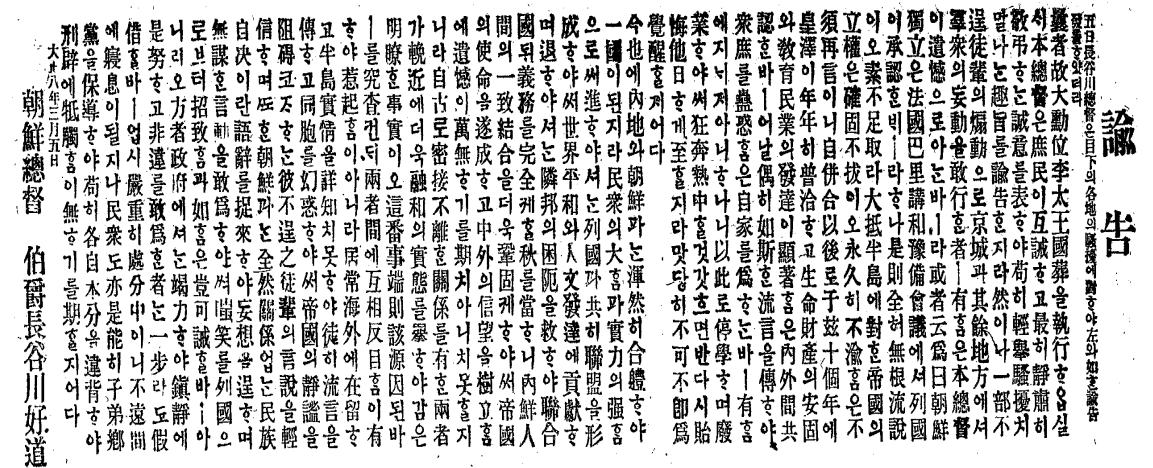 諭告
五日長谷川總督은目下의各地의騷擾에對ᄒᆞ야左와如ᄒᆞᆫ諭告
曩者故大勳位李太王國葬을執行ᄒᆞ옵실
시本總督은庶民이互誡ᄒᆞ고最히靜肅히
敬弔ᄒᆞᄂᆞᆫ誠意를表ᄒᆞ야苟히輕擧騷擾치
말나ᄂᆞᆫ趣旨를諭告ᄒᆞᆫ지라然이나一部不
逞徒輩의煽動으로京城과其餘地方에셔
羣衆의妄動을敢行ᄒᆞᆫ者ㅣ有ᄒᆞᆷ은本總督
이遺憾으로아ᄂᆞᆫ바ㅣ라或者云爲曰朝鮮
獨立은法國巴里講和豫備會議에셔列國
이承認ᄒᆞᆫ비ㅣ라ᄒᆞ나是則全혀無根流說
이오素不足取라大抵半島에對ᄒᆞᆫ帝國의
立權은確固不拔이오永久히不渝ᄒᆞᆷ은不
須再言이니自併合以後로于玆十個年에
皇澤이年年히普洽ᄒᆞ고生命財產의安固
와敎育民業의發達이顯著ᄒᆞᆷ은內外間共
認ᄒᆞᆫ바ㅣ어날偶히如斯ᄒᆞᆫ流言을傳ᄒᆞ야
衆庶를蠱惑ᄒᆞᆷ은自家를爲ᄒᆞᄂᆞᆫ바ㅣ有ᄒᆞᆷ
에지ᄂᆡ지아니ᄒᆞ나니以此로停學ᄒᆞ며廢
業ᄒᆞ야써狂奔熱中ᄒᆞᆯ것갓흐면반다시貽
悔他日ᄒᆞ게至ᄒᆞᆯ지라맛당히不可不卽爲
覺醒ᄒᆞᆯ져이다
今也에內地와朝鮮과ᄂᆞᆫ渾然히合體ᄒᆞ야
一國이된지라民衆의大ᄒᆞᆷ과實力의强ᄒᆞᆷ
으로써進ᄒᆞ야셔ᄂᆞᆫ列國과共히聯盟을形
成ᄒᆞ야써世界平和와人文發達에貢獻ᄒᆞ
며退ᄒᆞ야셔ᄂᆞᆫ隣邦의困阨을救ᄒᆞ야聯合
國된義務를完全케ᄒᆞᆯ秋를當ᄒᆞ니內鮮人
間의一致結合을더욱鞏固케ᄒᆞ야써帝國
의使命을遂成ᄒᆞ고中外의信望을樹立ᄒᆞᆷ
에遺憾이萬無ᄒᆞ기를期치아니치못ᄒᆞᆯ지
라니自古로密接不離ᄒᆞᆫ關係를有ᄒᆞᆫ兩者
가輓近에더욱融和의實態를擧ᄒᆞ야감은
明瞭ᄒᆞᆫ事實이오這番事端則該源因된바
ㅣ를究査컨듸兩者間에互相反目ᄒᆞᆷ이有
ᄒᆞ야惹起ᄒᆞᆷ이아니라居常海外에在留ᄒᆞ
고半島實情을詳知치못ᄒᆞ야徒히流言을
傳ᄒᆞ고同胞를幻惑ᄒᆞ야써帝國의靜謐을
阻碍코ᄌᆞᄒᆞᄂᆞᆫ彼不逞之徒輩의言說을輕
信ᄒᆞ며ᄯᅩᄒᆞᆫ朝鮮과ᄂᆞᆫ全然關係업ᄂᆞᆫ民族
自决이란語辭를捉來ᄒᆞ야妄想을逞ᄒᆞ며
無謀ᄒᆞᆫ言動을敢爲ᄒᆞ야써嗤笑를列國으
로브터招致ᄒᆞᆷ과如ᄒᆞᆷ은豈可誡ᄒᆞᆯ바ㅣ아
니리오方者政府에셔ᄂᆞᆫ竭力ᄒᆞ야鎭靜에
是努ᄒᆞ고非違를敢爲ᄒᆞᆫ者ᄂᆞᆫ一步라도假
借ᄒᆞᆯ바ㅣ업시嚴重히處分中이니不遠間
에寢息이될지나民衆도亦是能히子弟鄕
黨을保導ᄒᆞ야苟히各自本分을違背ᄒᆞ야
刑辟에牴觸ᄒᆞᆷ이無ᄒᆞ기를期ᄒᆞᆯ지어다
大正八年三月五日
朝鮮總督 伯爵長谷川好道